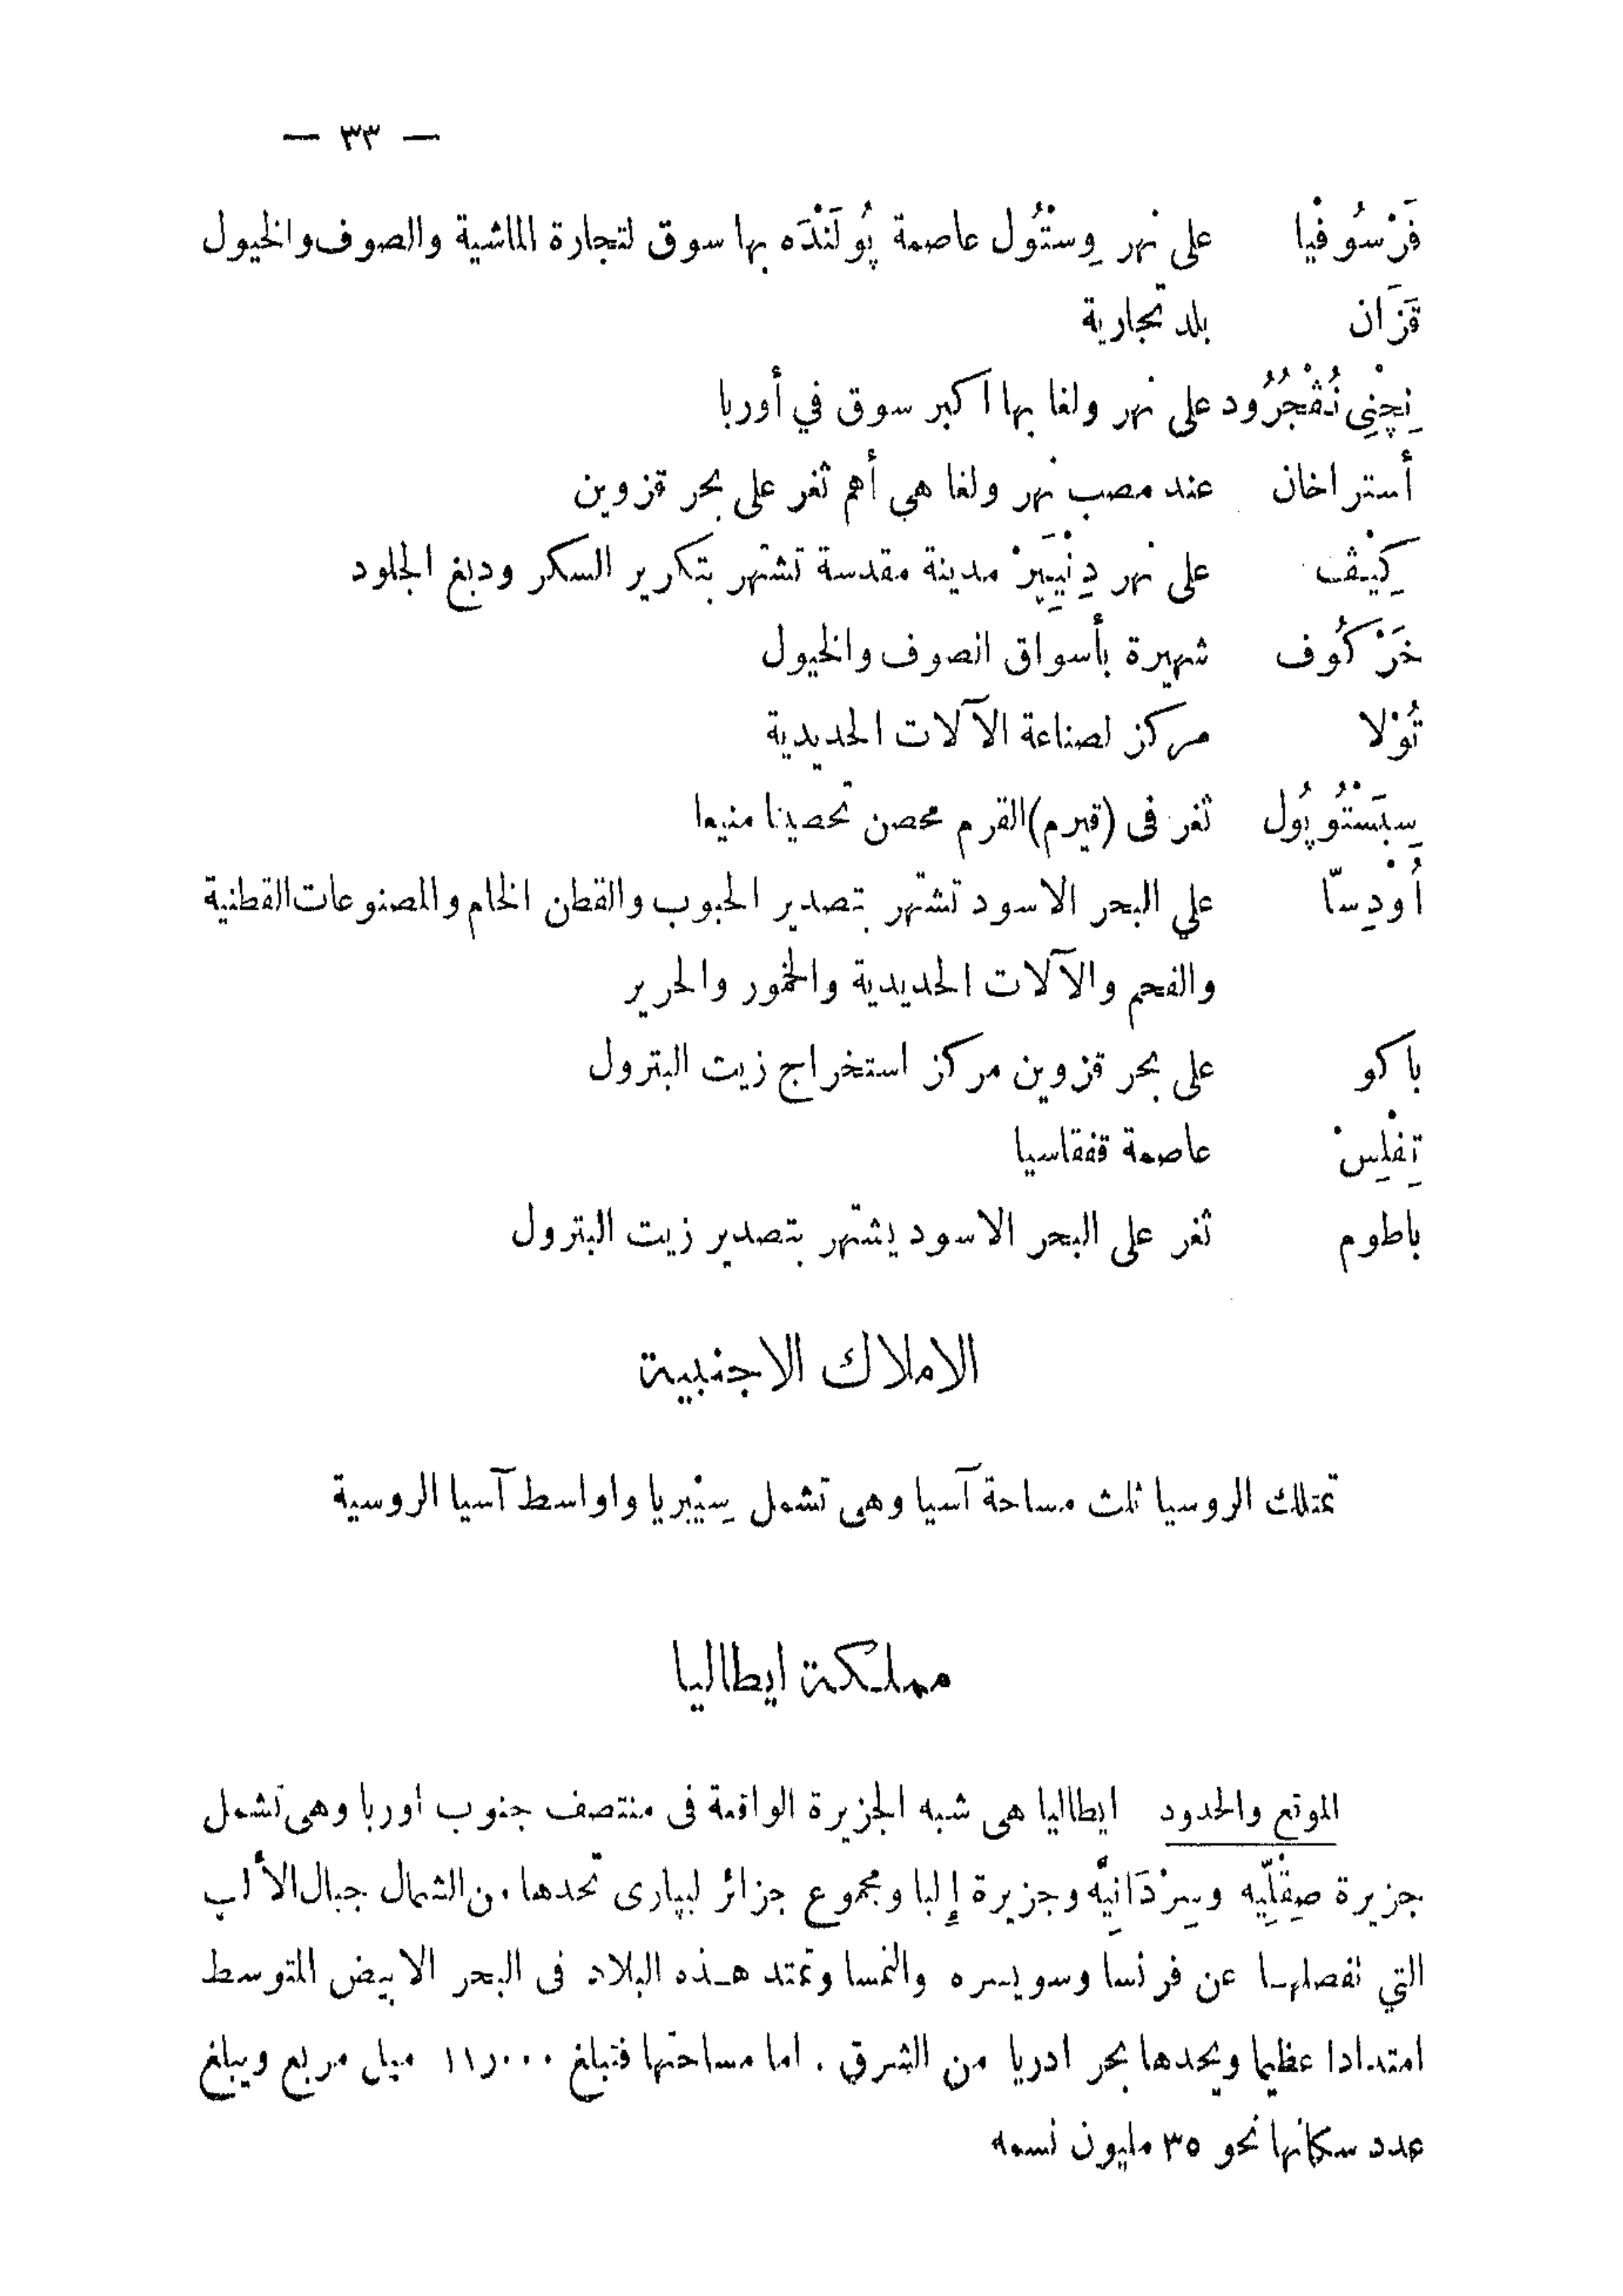 — ٣٣ —
فَرْسُوفْيا على نهر وِسْتُول عاصمة پُولَنْدَه بها سوق لتجارة الماشية والصوف والخيول
قَزَان بلد تجارية
نِچْنِى نُڤْجُرُود على نهر ولغا بها اكبر سوق في أوربا
أستراخان عند مصب نهر ولغا هي أهم ثغر على بحر قزوين
كِيْڤ على نهر دِنْيِپَرْ مدينة مقدسة تشتهر بتكرير السكر ودبغ الجلود
خَرْكُوف شهيرة بأسواق الصوف والخيول
تُوْلا مركز لصناعة الآلات الحديدية
سِبَسْتُوپُول ثغر فى (قيرم) القرم محصن تحصينا منيعا
أُوْدِسّا على البحر الاسود تشتهر بتصدير الحبوب والقطن الخام والمصنوعات القطنية
والفحم والآلات الحديدية والخمور والحرير
باكو على بحر قزوين مركز استخراج زيت البترول
تِفْلِسْ عاصمة قفقاسيا
باطوم ثغر على البحر الاسود يشتهر بتصدير زيت البترول
الاملاك الاجنبية
تمتلك الروسيا ثلث مساحة آسيا وهى تشمل سِيْبريا واواسط آسيا الروسية
مملكة ايطاليا
الموقع والحدود ايطاليا هى شبه الجزيرة الواقعة فى منتصف جنوب اوربا وهى تشمل
جزيرة صِقْلِّيه وسِرْدَانِيَّه وجزيرة إلبا ومجموع جزائر ليپارى تحدها من الشمال جبال الألب
التي تفصلها عن فرنسا وسويسره والنمسا وتمتد هذه البلاد فى البحر الابيض المتوسط
امتدادا عظيما ويحدها بحر ادريا من الشرق . اما مساحتها فتبلغ ١١ر٠٠٠ ميل مربع ويبلغ
عدد سكانها نحو ٣٥ مليون نسمه